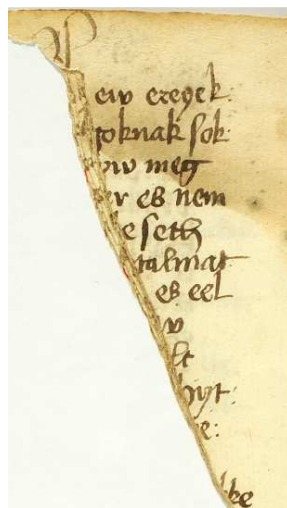 ew ereyek
toknak sok
ow meg
r es nem
e seth
talmat
es eel
w
lt
hyt:
e:
ke